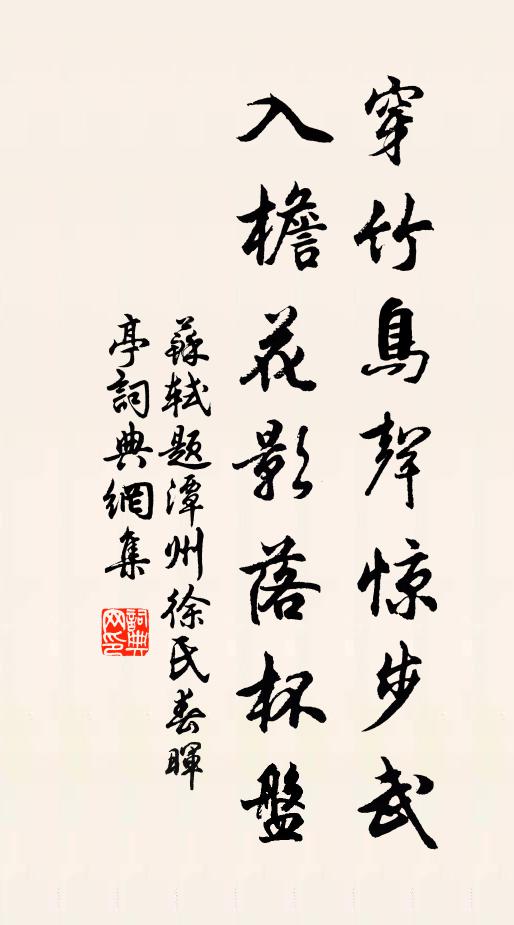 穿竹鳥聲惊步武
入檐花影落杯盤
蘇軾题潭州徐氏春暉
亭詞典網集
詞典
网印